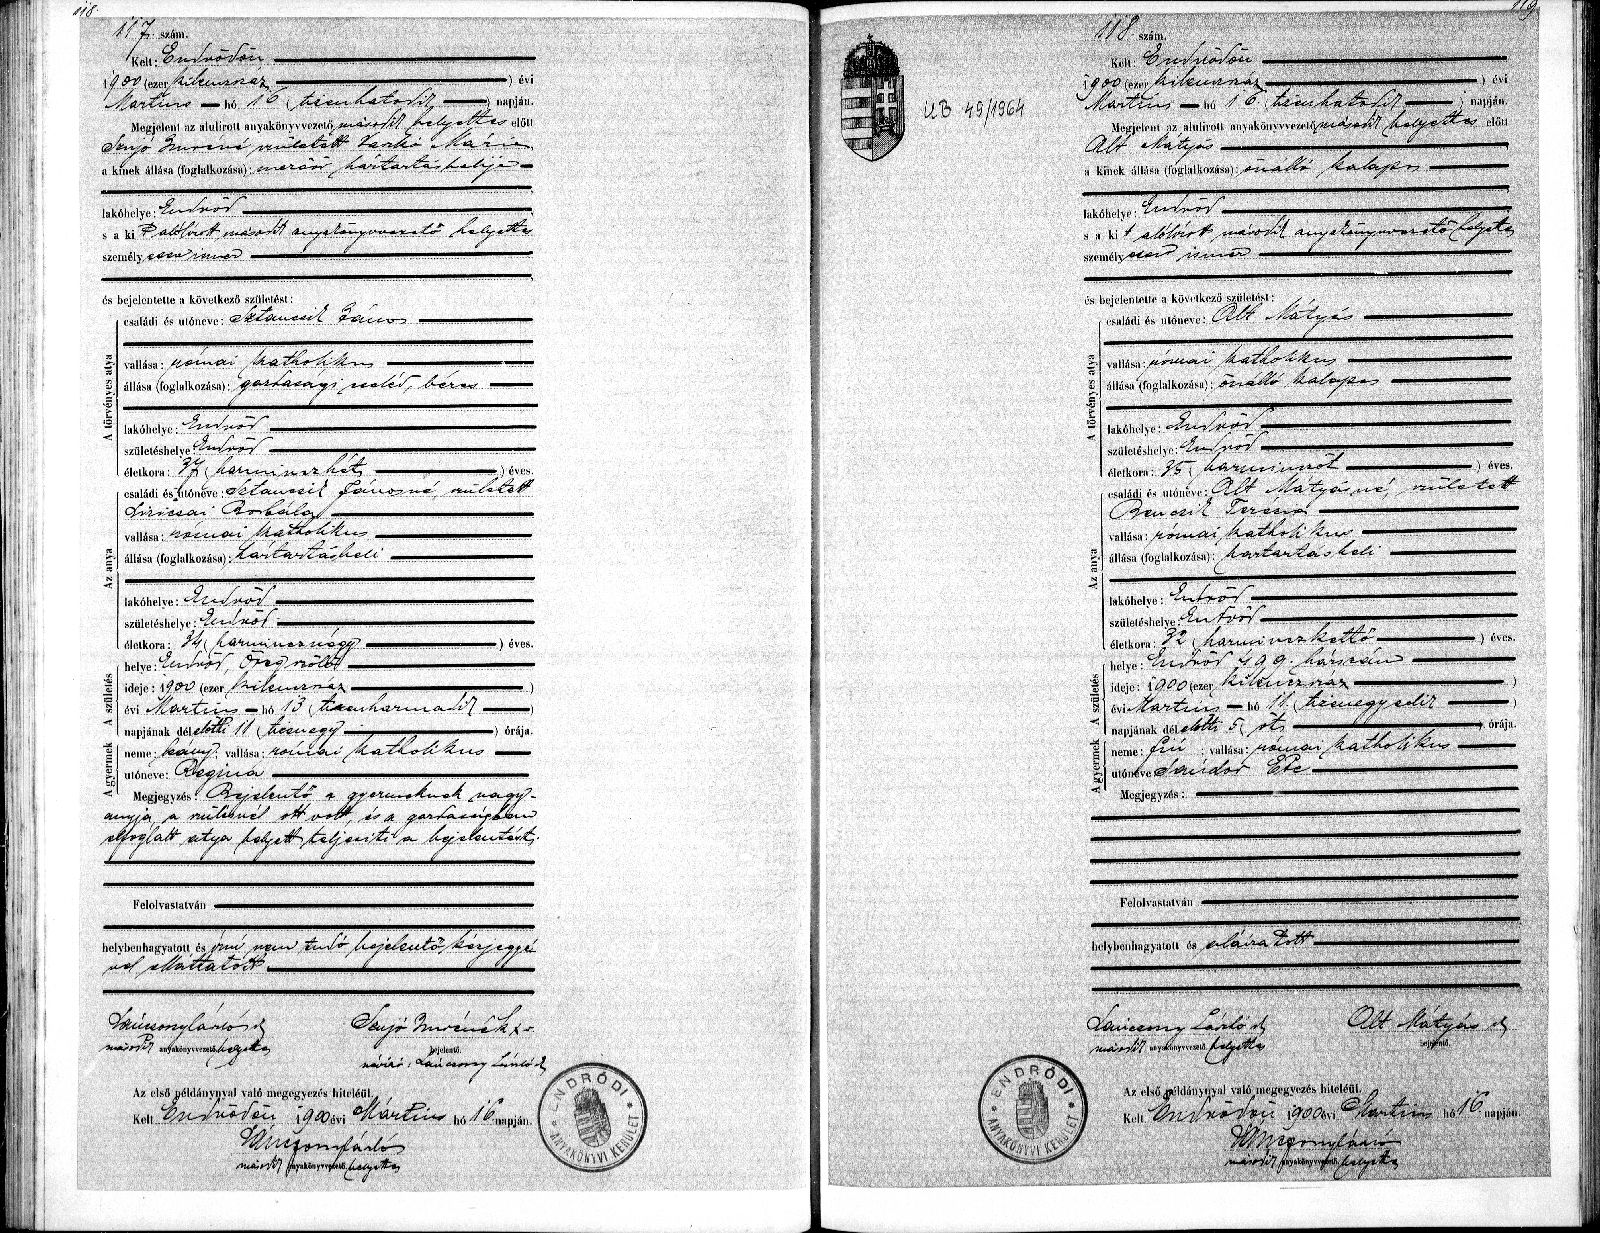 118.
117 szám.
Kelt: Endrődön
1900 (ezer kilenczszáz) évi
Martius hó 16 (tizenhatodik) napján.
Megjelent az alulirott anyakönyvvezető második helyettes előtt
Imréné született Mária
a kinek állása (foglalkozása): háztartásbelije
lakóhelye: Endrőd
s a kit alólirott második anyakönyvvezető helyettes
személyesen ismer
és bejelentette a következő születést:
A törvényes atya
családi és utóneve: Sztancsik János
vallása: római katholikus
állása (foglalkozása): gazdasági cseléd, béres
lakóhelye: Endrőd
születéshelye: Endrőd
életkora: 37 (harminczhét) éves.
Az anya
családi és utóneve: Sztancsik Jánosné, született
Borbála
vallása: római katholikus
állása (foglalkozása): háztartásbeli
lakóhelye: Endrőd
születéshelye: Endrőd
életkora: 34 (harmincznégy) éves.
A születés
helye: Endrőd, Öregszőlő
ideje: 1900 (ezer kilenczszáz)
évi Martius hó 13 (tizenharmadik)
napjának délelőtti 11 (tizenegy) órája.
A gyermek
neme: leány; vallása: római katholikus
utóneve: Regina
Megjegyzés: Bejelentő a gyermeknek nagy-
anyja, a szülésnél ott volt, és a gazdaságban
elfoglalt atya helyett teljesiti a bejelentést.
Felolvastatván
helybenhagyatott és irni nem tudó bejelentő kézjegyé-
vel elláttatott
Láncsony László sk
második anyakönyvvezető helyettes
Imréné
bejelentő.
névíró: Láncsony László sk
Az első példánynyal való megegyezés hiteléül.
Kelt Endrődön 1900 évi Mártius hó 16 napján.
Láncsony László
második anyakönyvvezető helyettes
ENDRŐDI ANYAKÖNYVI KERÜLET
119
UB 49/1964
118 szám.
Kelt: Endrődön
1900 (ezer kilenczszáz) évi
Martius hó 16 (tizenhatodik) napján.
Megjelent az alulirott anyakönyvvezető második helyettes előtt
Alt Mátyás
a kinek állása (foglalkozása): önálló kalapos
lakóhelye: Endrőd
s a kit alólirott második anyakönyvvezető helyettes
személyesen ismer
és bejelentette a következő születést:
A törvényes atya
családi és utóneve: Alt Mátyás
vallása: római katholikus
állása (foglalkozása): önálló kalapos
lakóhelye: Endrőd
születéshelye: Endrőd
életkora: 35 (harminczöt) éves.
Az anya
családi és utóneve: Alt Mátyásné, született
Bencsik Terezia
vallása: római katholikus
állása (foglalkozása): háztartásbeli
lakóhelye: Endrőd
születéshelye: Endrőd
életkora: 32 (harminczkettő) éves.
A születés
helye: Endrőd 799. házszám
ideje: 1900 (ezer kilenczszáz)
évi Martius hó 11. (tizenegyedik)
napjának délelőtti 5 (öt) órája.
A gyermek
neme: fiú; vallása: római katholikus
utóneve: Sándor
Megjegyzés:
Felolvastatván
helybenhagyatott és aláiratott
Láncsony László sk
második anyakönyvvezető helyettes
Alt Mátyás sk
bejelentő.
Az első példánynyal való megegyezés hiteléül.
Kelt Endrődön 1900 évi Martius hó 16 napján.
Láncsony László
második anyakönyvvezető helyettes
ENDRŐDI ANYAKÖNYVI KERÜLET